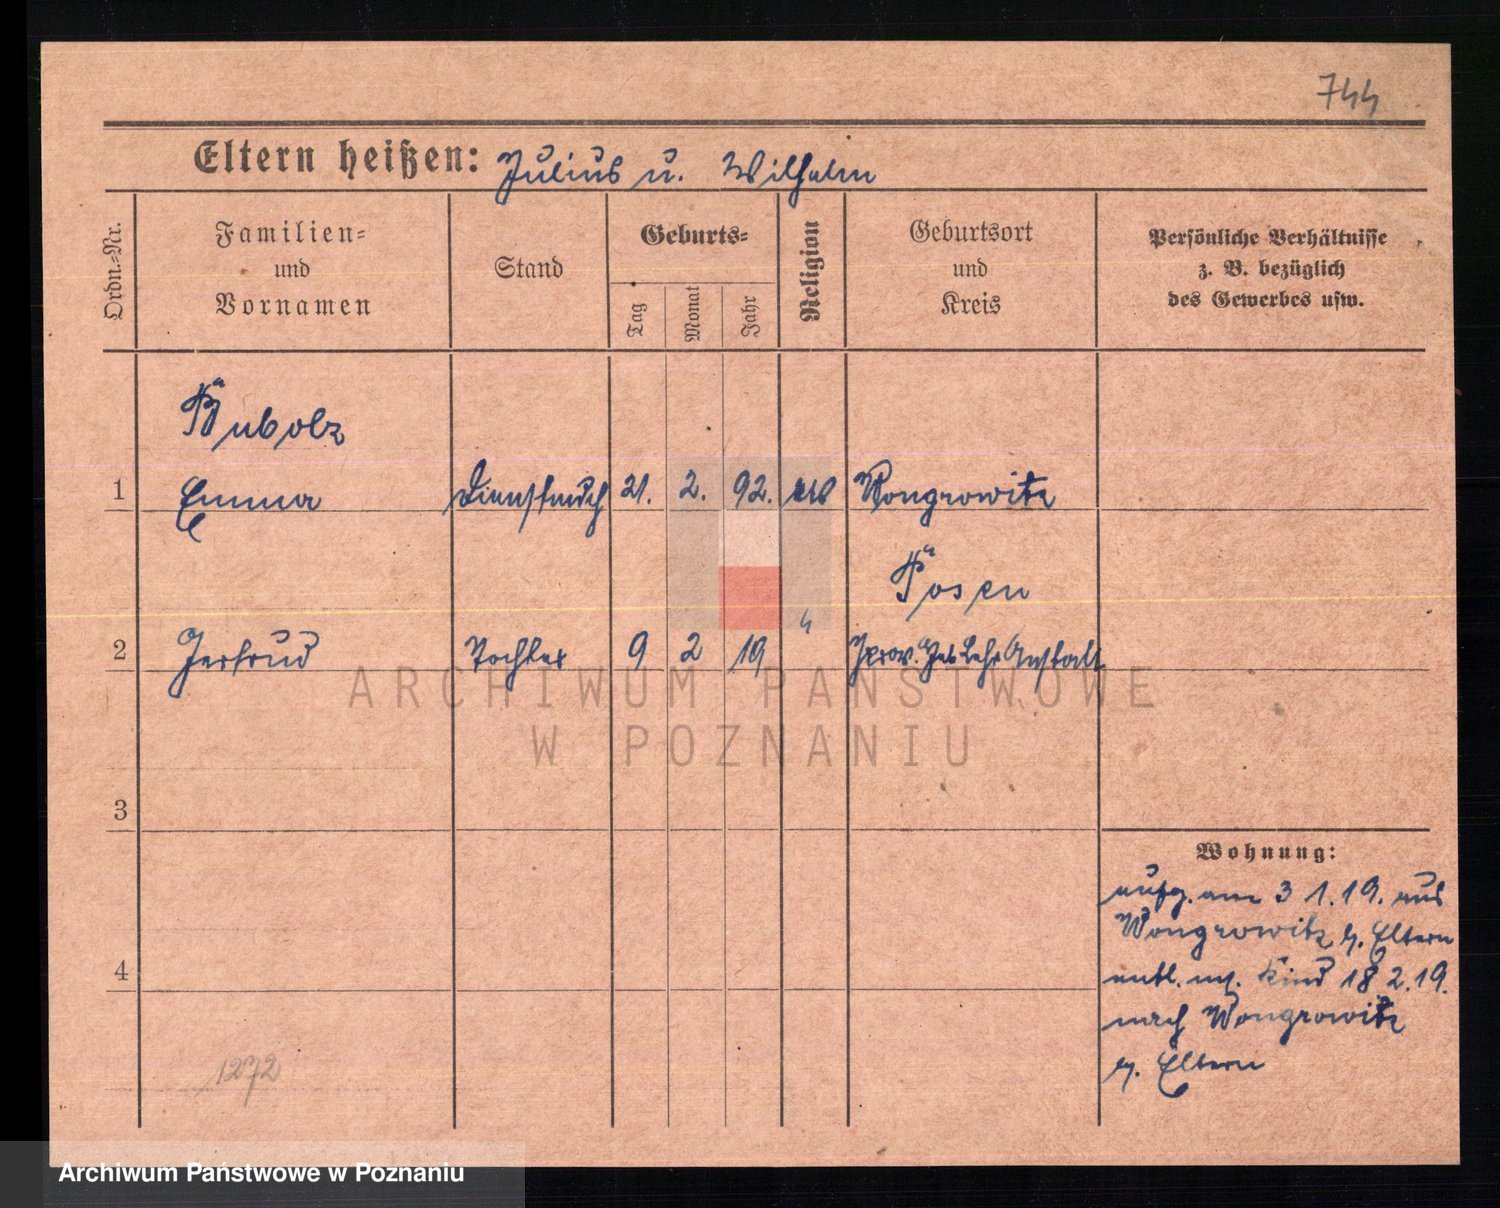 744
Eltern heißen: Julius u. Wilhelm
Ordn.-Nr.
Familien-
und
Vornamen
Stand
Geburts-
Tag
Monat
Jahr
Religion
Geburtsort
und
Kreis
Persönliche Verhältnisse
z. B. bezüglich
des Gewerbes usw.
Bubolz
1 Emma Dienstmdch 21. 2. 92. Wongrowitz
Posen
2 Gertrud Tochter 9 2 19 " Prov. Heb Lehr Anstalt
3
4
Wohnung:
aufg. am 3 1. 19. aus
Wongrowitz Eltern
entl. m. Kind 18 2. 19.
nach Wongrowitz
Eltern
1272
ARCHIWUM PAŃSTWOWE
W POZNANIU
Archiwum Państwowe w Poznaniu